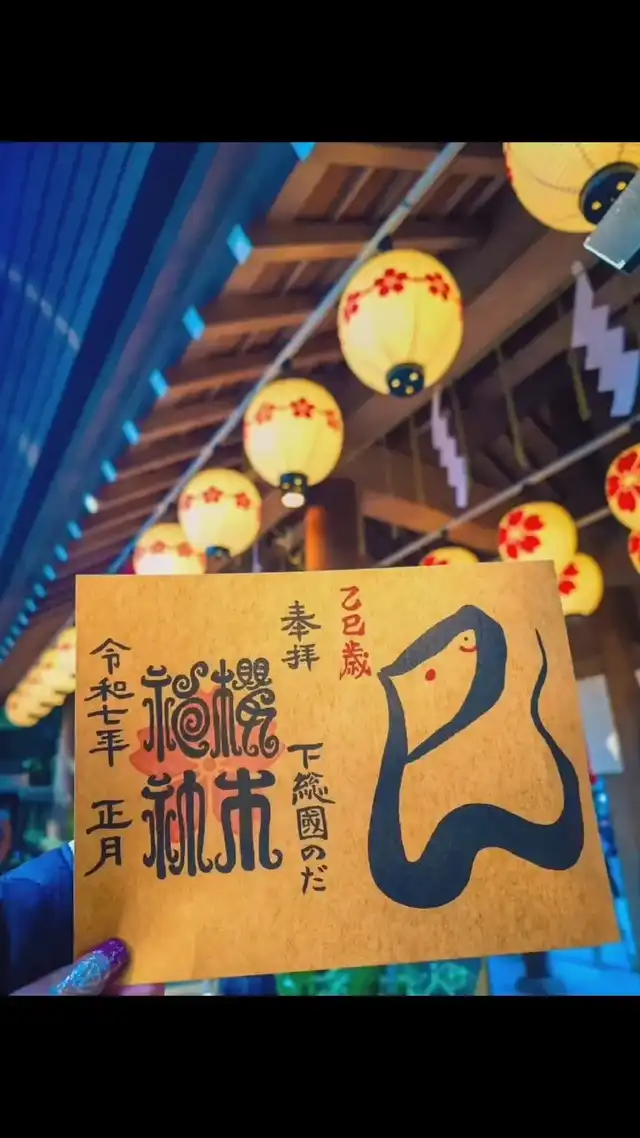 巳
乙巳歳
奉拝
下総國のだ
櫻木
神社
令和七年 正月